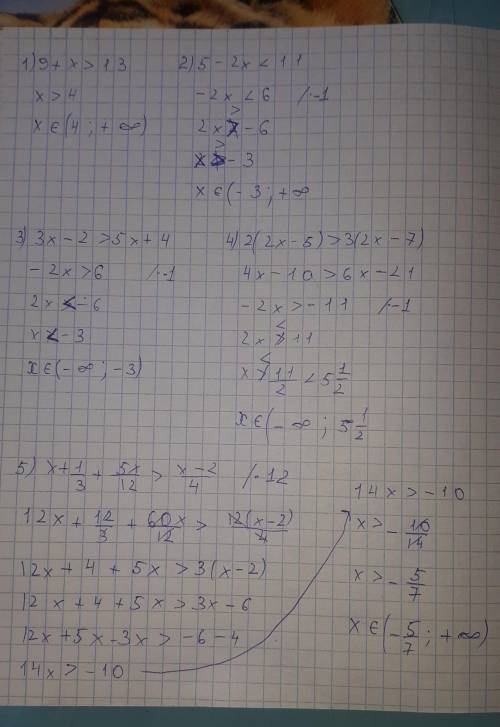 1) 9 + x > 13
x > 4
x ∈ (4 ; + ∞)
2) 5 - 2x < 11
-2x < 6 /·-1
2x > -6
x > -3
x ∈ (-3 ; +∞
3) 3x - 2 > 5x + 4
-2x > 6 /·-1
2x < -6
x < -3
x ∈ (-∞ ; -3)
4) 2(2x - 5) > 3(2x - 7)
4x - 10 > 6x - 21
-2x > -11 /·-1
2x < 11
x < 11/2 < 5 1/2
x ∈ (-∞ ; 5 1/2
5) x + 1/3 + 5x/12 > x-2/4 /·12
12x + 12/3 + 60x/12 > 12(x-2)/4
12x + 4 + 5x > 3(x-2)
12x + 4 + 5x > 3x - 6
12x + 5x - 3x > -6 - 4
14x > -10
14x > -10
x > - 10/14
x > - 5/7
x ∈ (- 5/7 ; +∞)